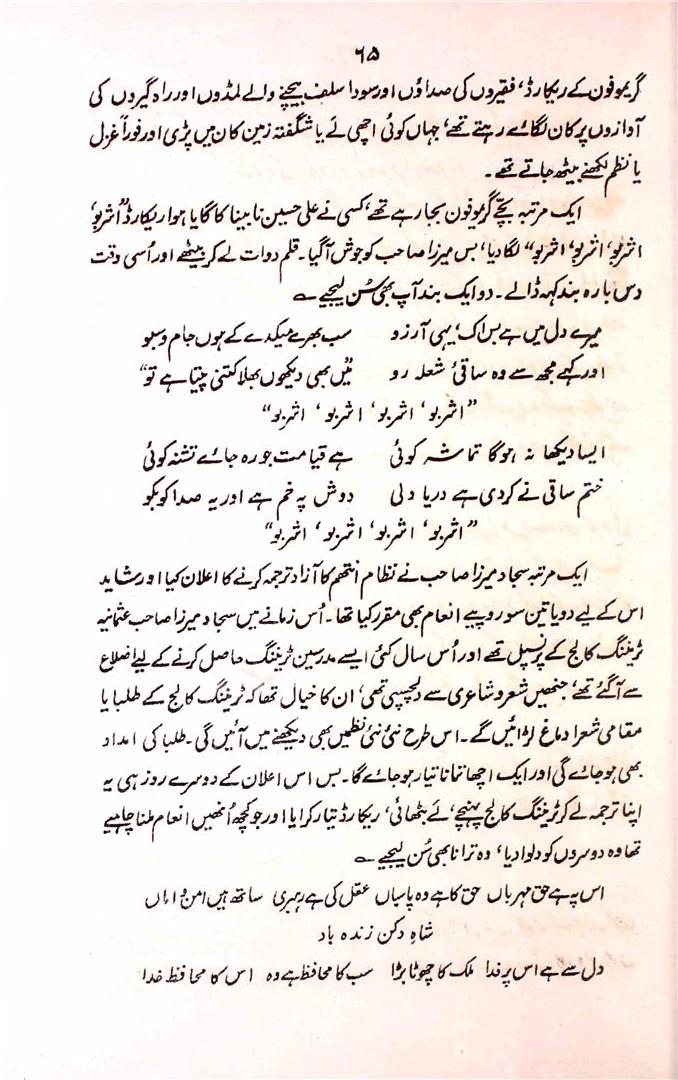 ۶۵
گریموفون کے ریکارڈ، فقیروں کی صداؤں اور سودا سلف بیچنے والے لمڈوں اور راہ گیروں کی
آوازوں پر کان لگائے رہتے تھے، جہاں کوئی اچھی لے یا شگفتہ زمین کان میں پڑی اور فوراً غزل
یا نظم لکھنے بیٹھ جاتے تھے۔
ایک مرتبہ بچے گریموفون بجا رہے تھے، کسی نے علی حسین نابینا کا گایا ہوا ریکارڈ "اشربو،
اشربو، اشربو، اشربو" لگا دیا، بس میرزا صاحب کو جوش آگیا۔ قلم دوات لے کر بیٹھے اور اُسی وقت
دس بارہ بند کہہ ڈالے۔ دو ایک بند آپ بھی سُن لیجیے ؎
میرے دل میں ہے بس اک، یہی آرزو سب بھرے میکدے کے ہوں جام و سبو
اور کہے مجھ سے وہ ساقیٔ شعلہ رو "میں بھی دیکھوں بھلا کتنی پیتا ہے تو"
"اشربو، اشربو، اشربو، اشربو"
ایسا دیکھا نہ ہوگا تماشہ کوئی ہے قیامت جو رہ جائے تشنہ کوئی
ختم ساقی نے کردی ہے دریا دلی دوش پہ خم ہے اور یہ صدا کو بکو
"اشربو، اشربو، اشربو، اشربو"
ایک مرتبہ سجاد میرزا صاحب نے نظام انتھم کا آزاد ترجمہ کرنے کا اعلان کیا اور شاید
اس کے لیے دو یا تین سو روپیے انعام بھی مقرر کیا تھا۔ اُس زمانے میں سجاد میرزا صاحب عثمانیہ
ٹریننگ کالج کے پرنسپل تھے اور اُس سال کئی ایسے مدرسین ٹریننگ حاصل کرنے کے لیے اضلاع
سے آگئے تھے، جنھیں شعر و شاعری سے دلچسپی تھی، ان کا خیال تھا کہ ٹریننگ کالج کے طلبا یا
مقامی شعرا دماغ لڑائیں گے۔ اس طرح نئی نئی نظمیں بھی دیکھنے میں آئیں گی۔ طلبا کی امداد
بھی ہوجائے گی اور ایک اچھا تماشا تیار ہوجائے گا۔ بس اس اعلان کے دوسرے روز ہی یہ
اپنا ترجمہ لے کر ٹریننگ کالج پہنچے، لے بٹھائی، ریکارڈ تیار کرایا اور جو کچھ اُنھیں انعام ملنا چاہیے
تھا وہ دوسروں کو دلوا دیا، وہ ترانا بھی سُن لیجیے ؎
اس پہ ہے حق مہرباں حق کا ہے وہ پاسباں عقل کی ہے رہبری ساتھ ہیں امن و اماں
شاہِ دکن زندہ باد
دل سے ہے اس پر فدا ملک کا چھوٹا بڑا سب کا محافظ ہے وہ اس کا محافظ خدا